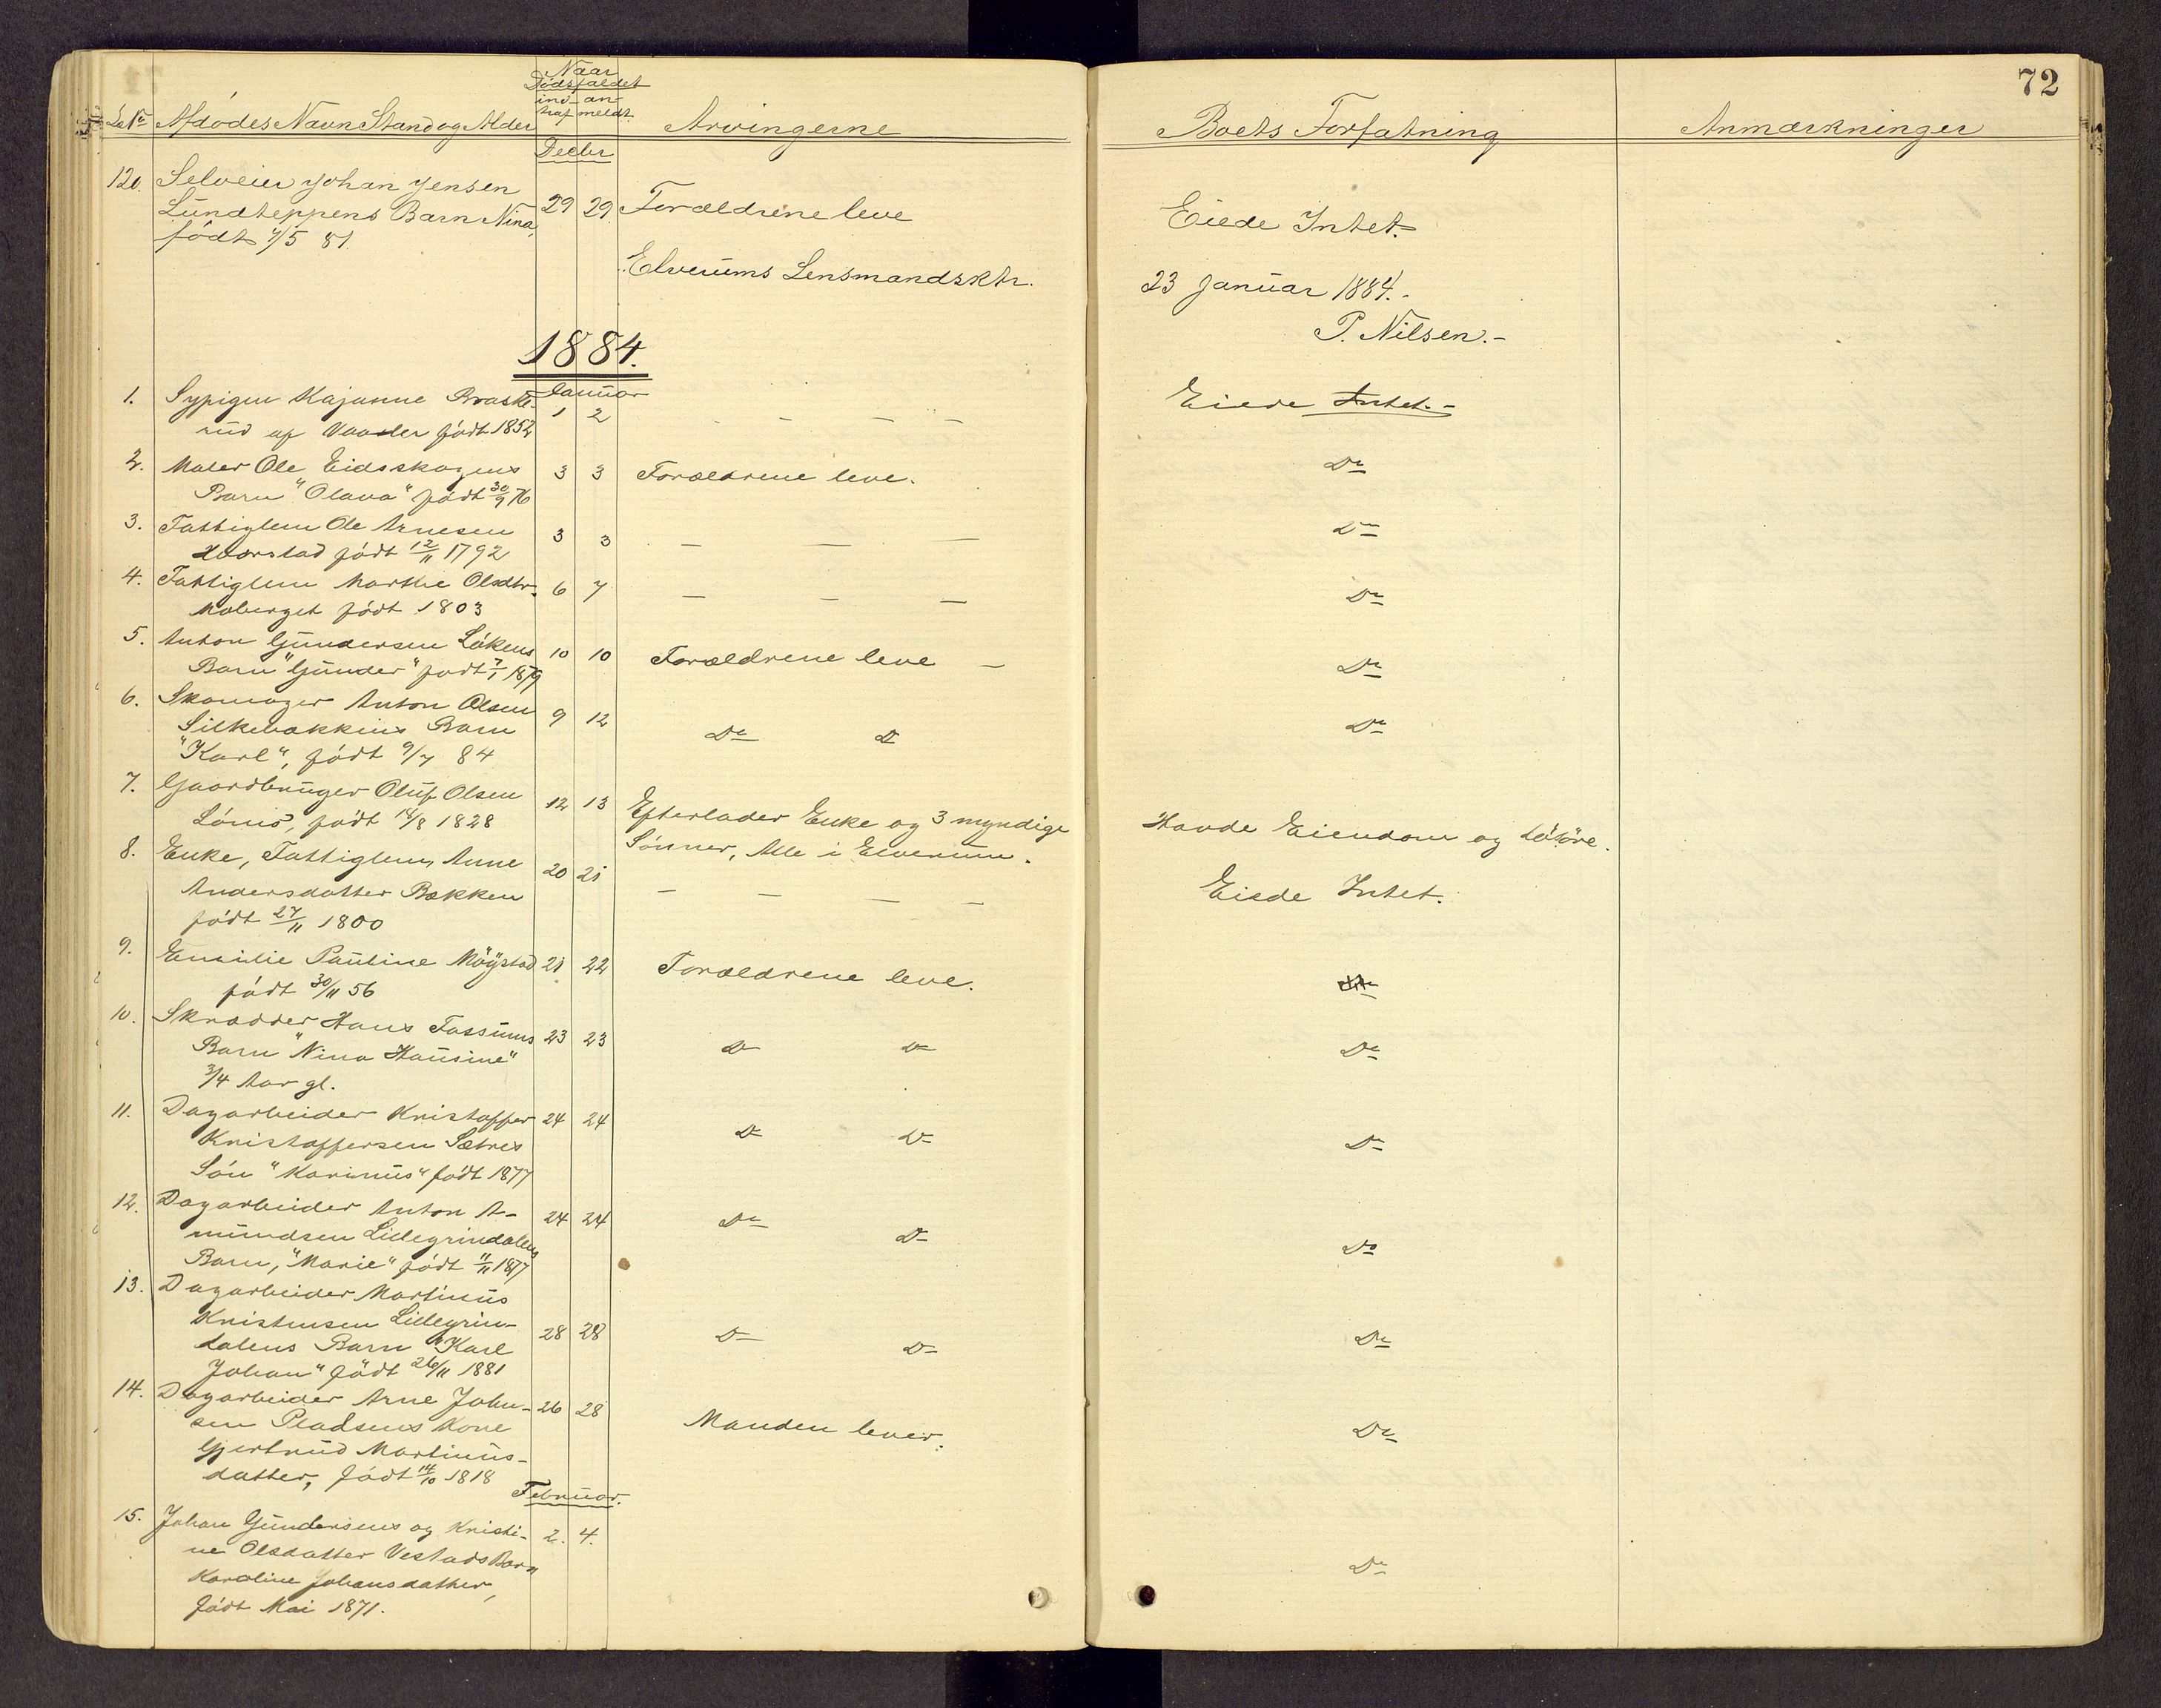 72
Naar
Dödsfaldet
ind- an-
traf meldt.
Lø No Afdödes Navn Stand og Alder
Arvingerne
Boets Forfatning
Anmærkninger
Decbr
120. Selveier Johan Jensen
Lundteppens Barn Nina,
födt 4/5 81.
29 29
Forældrene leve
Eiede Intet.
Elverums Lensmandsktr.
23 Januar 1884.-
P. Nilsen.-
1884.
Januar
1. Sypigen Kajanne Braske-
rud af Vaaler födt 1852
1 2
— — — —
Eiede Intet.-
2. Maler Ole Eidsskogens
Barn "Olava" födt 30/9 76
3 3
Forældrene leve.
Do
3. Fattiglem Ole Arnesen
födt 12/11 1792
3 3
— — —
Do
4. Fattiglem Marthe Olsdtr.
Moberget födt 1803
6 7
— — —
Do
5. Anton Gundersen Lökens
Barn "Gunder" födt 7/1 1879
10 10
Forældrene leve —
Do
6. Skomager Anton Olsen
Silkebakkens Barn
"Karl", födt 9/7 84
9 12
Do Do
Do
7. Gaardbruger Oluf Olsen
födt 14/8 1828
12 13
Efterlader Enke og 3 myndige
Sönner, Alle i Elverum.
Havde Eiendom og Lösöre.
8. Enke, Fattiglem, Anne
Andersdatter Bækken
födt 27/11 1800
20 21
— — — —
Eiede Intet.
9. Emilie Pauline Möystad
födt 30/11 56
21 22
Forældrene leve.
10. Skrædder Hans Fossums
Barn "Nina Hansine"
3/4 Aar gl.
23 23
Do Do
Do
11. Dagarbeider Kristoffer
Kristoffersen Sætres
Sön "Karinus" födt 1877
24 24
Do Do
Do
12. Dagarbeider Anton A-
mundsen Lillegrindalens
Barn, "Marie" födt 11/11 1877
24 24
Do Do
Do
13. Dagarbeider Martinus
Kristensen Lillegrin-
dalens Barn "Karl
Johan" födt 26/11 1881
28 28
Do Do
Do
14. Dagarbeider Arne John-
sen Pladsens Kone
Gjertrud Martinus-
datter, födt 14/10 1818
26 28
Manden lever.
Do
Februar.
15. Johan Gundersens og Kristi-
ne Olsdatter Vestads Barn
Karoline Johansdatter,
födt Mai 1871.
2. 4.
Do